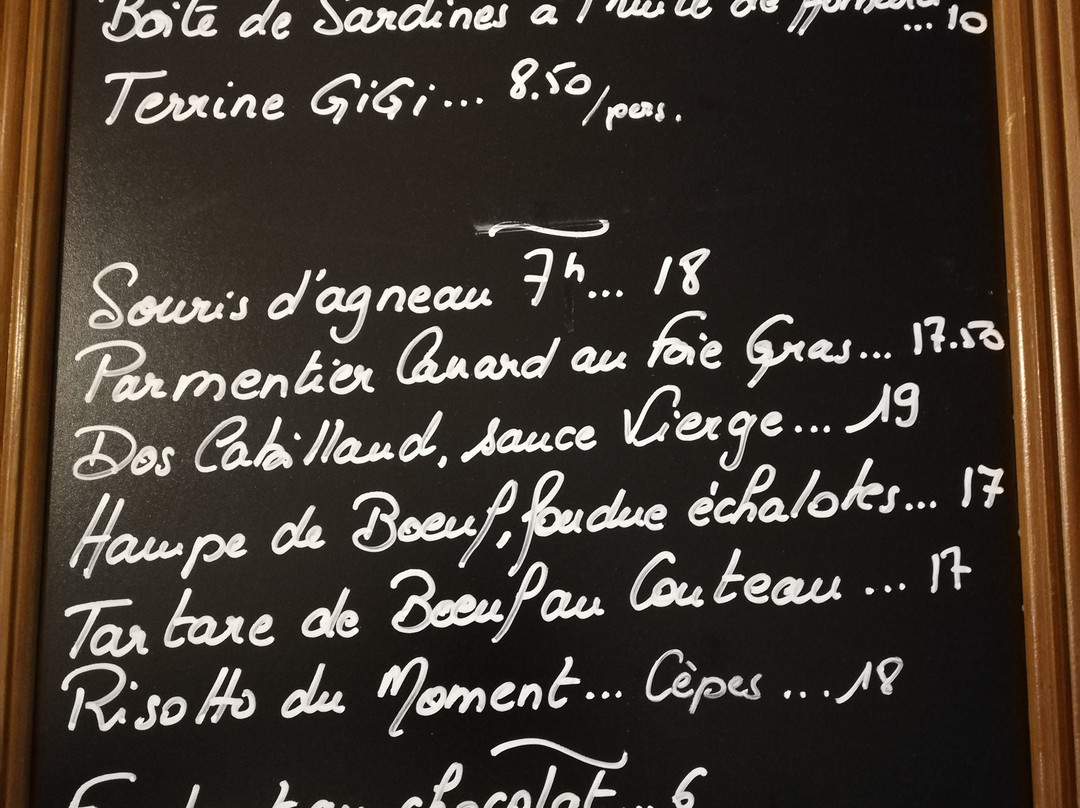 Boîte de Sardines à l'huile de
... 10
Terrine GiGi... 8.50/pers.
Souris d'agneau 7h... 18
Parmentier Canard au Foie Gras... 17.50
Dos Cabillaud, sauce Vierge... 19
Hampe de Boeuf, fondue échalotes... 17
Tartare de Boeuf au Couteau ... 17
Risotto du Moment... Cèpes ... 18
chocolat... 6